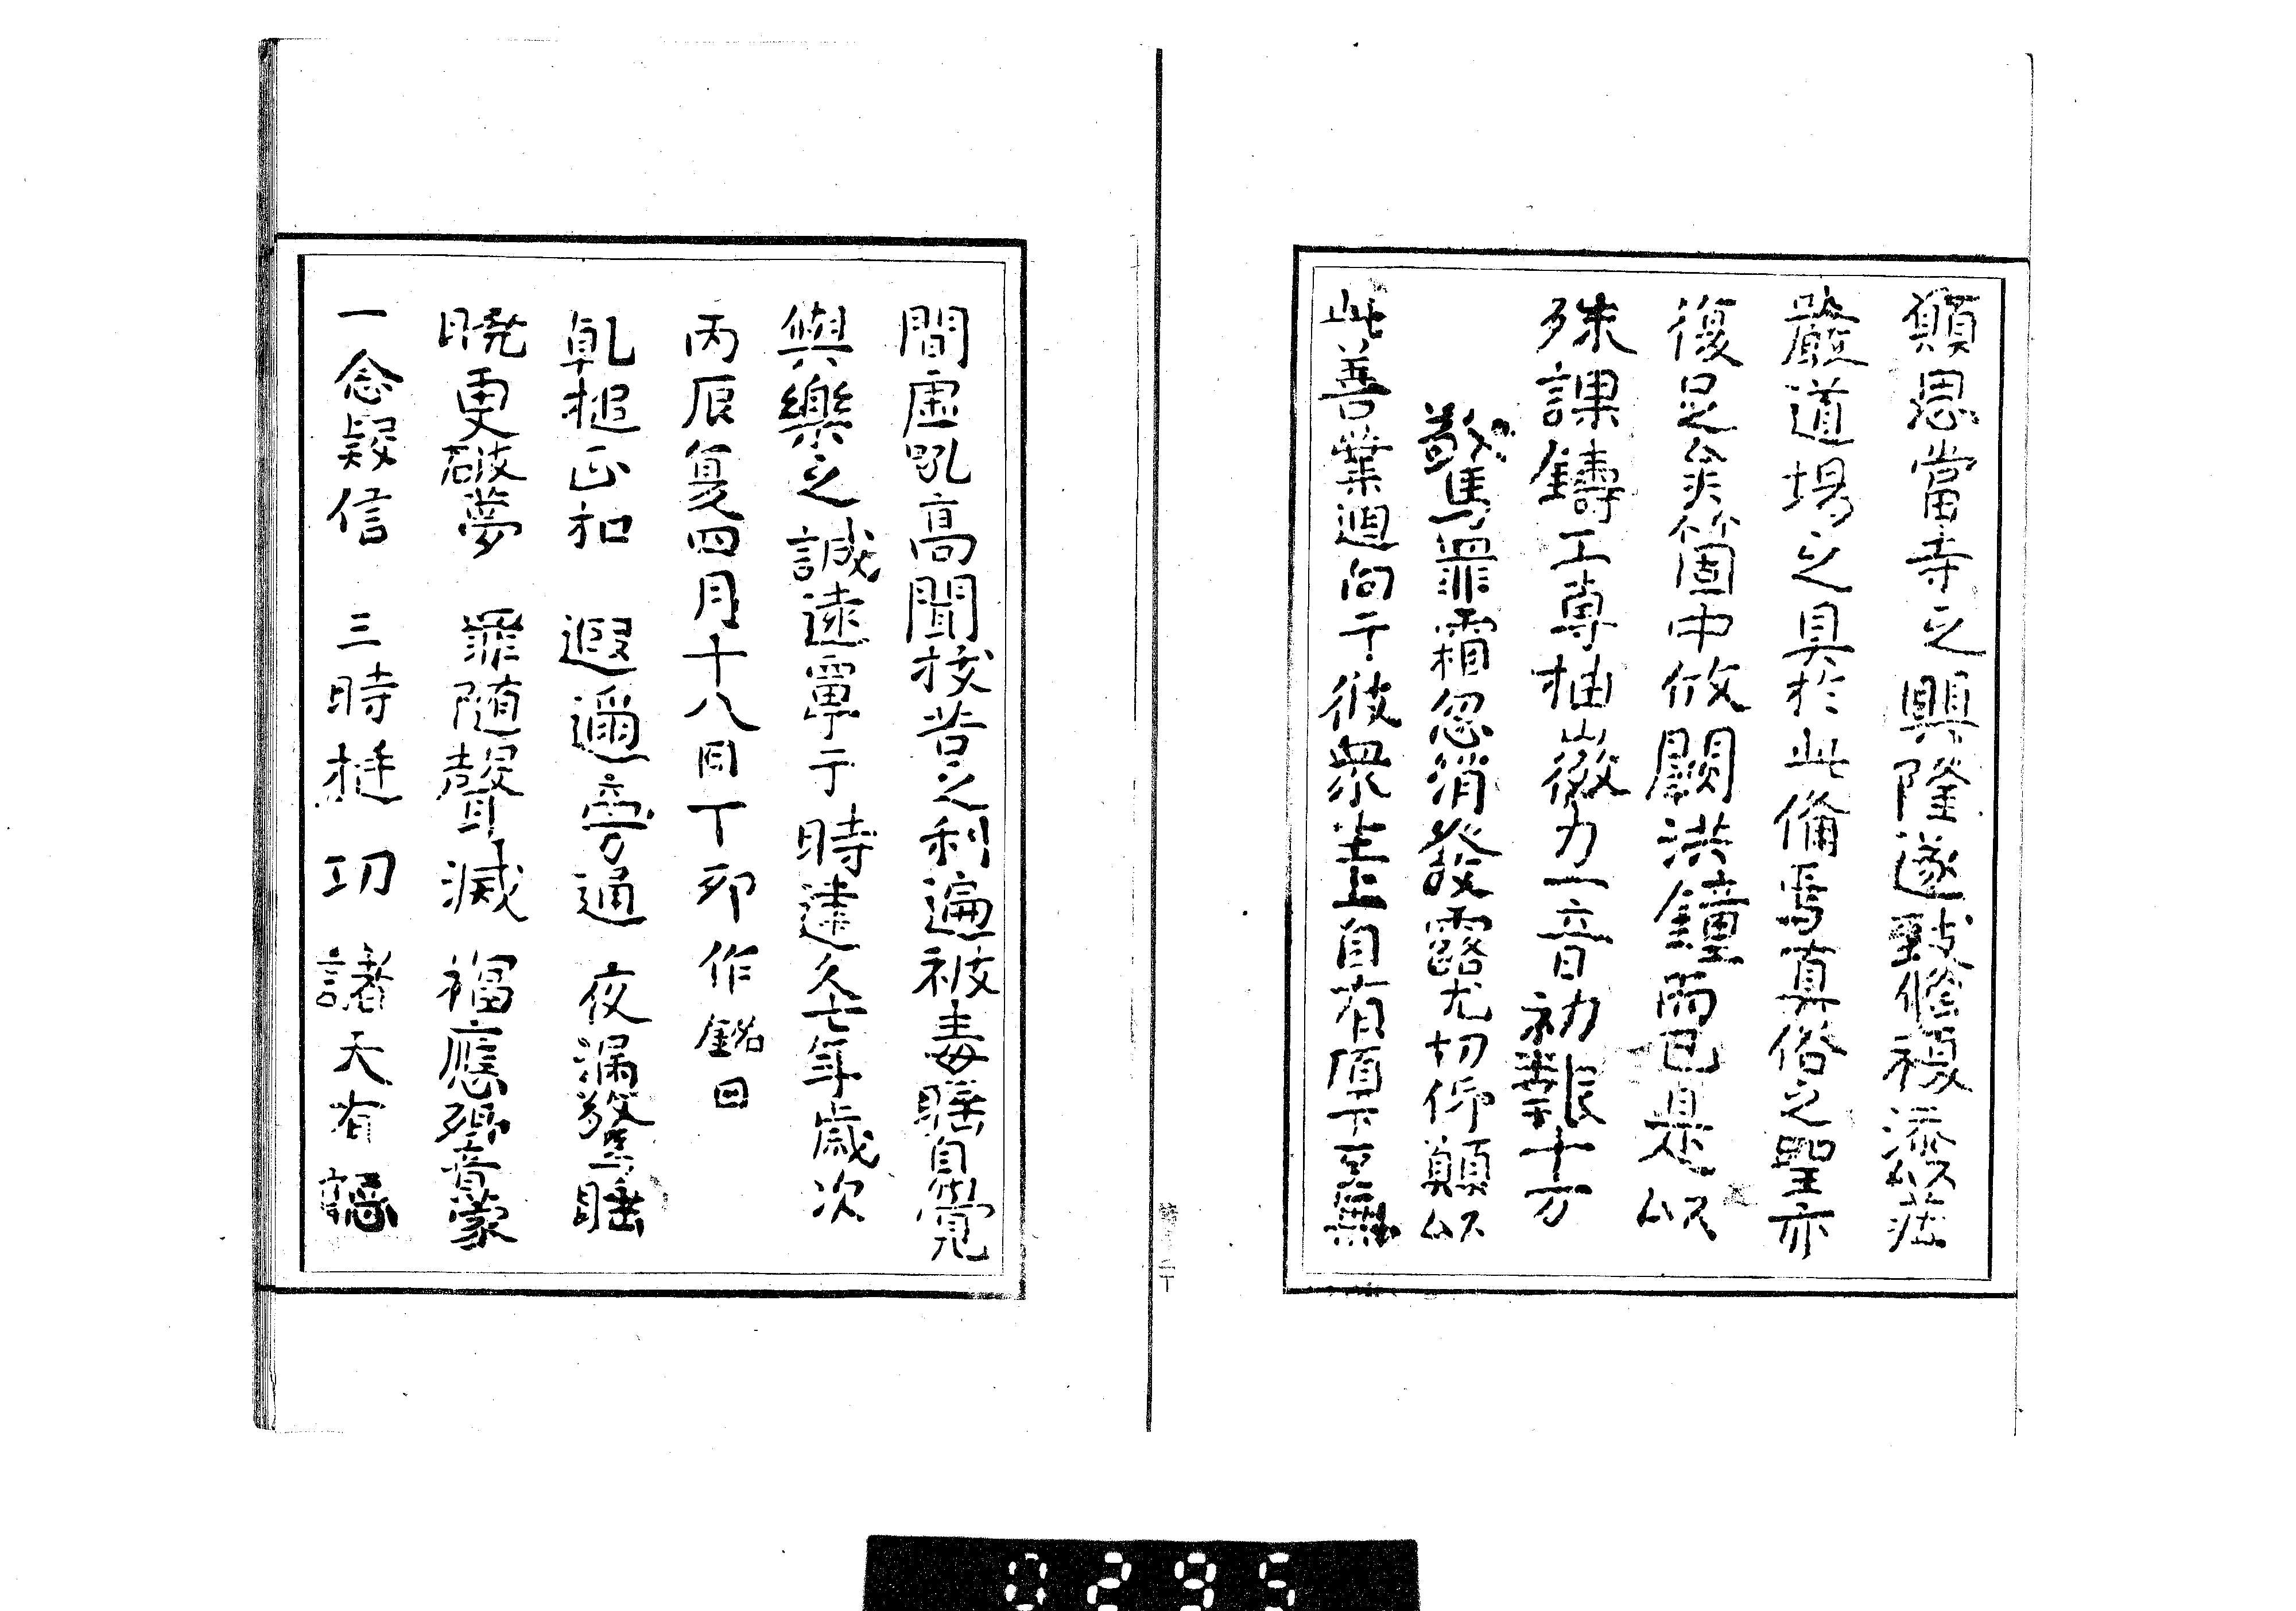 顛思當寺之興隆遂致修複添以莊
嚴道場之具於此備焉真俗之聖亦
復足矣箇中攸闕洪鐘而已是以
殊課鑄工專抽微力一音初報十方
驚罪霜忽消發露尤切仰顛以
此善業迴向于彼衆上自有頂下至無
間虚吼高聞拔苦之利遍被毒睡自覺
與樂之誠遠覃于時建久七年歳次
丙辰夏四月十八日丁卯作銘曰
乹槌正扣　遐邇旁通　夜漏驚睡
暁更破夢　罪随聲滅　福應響蒙
一念疑信　三時挻功　諸天有
0295